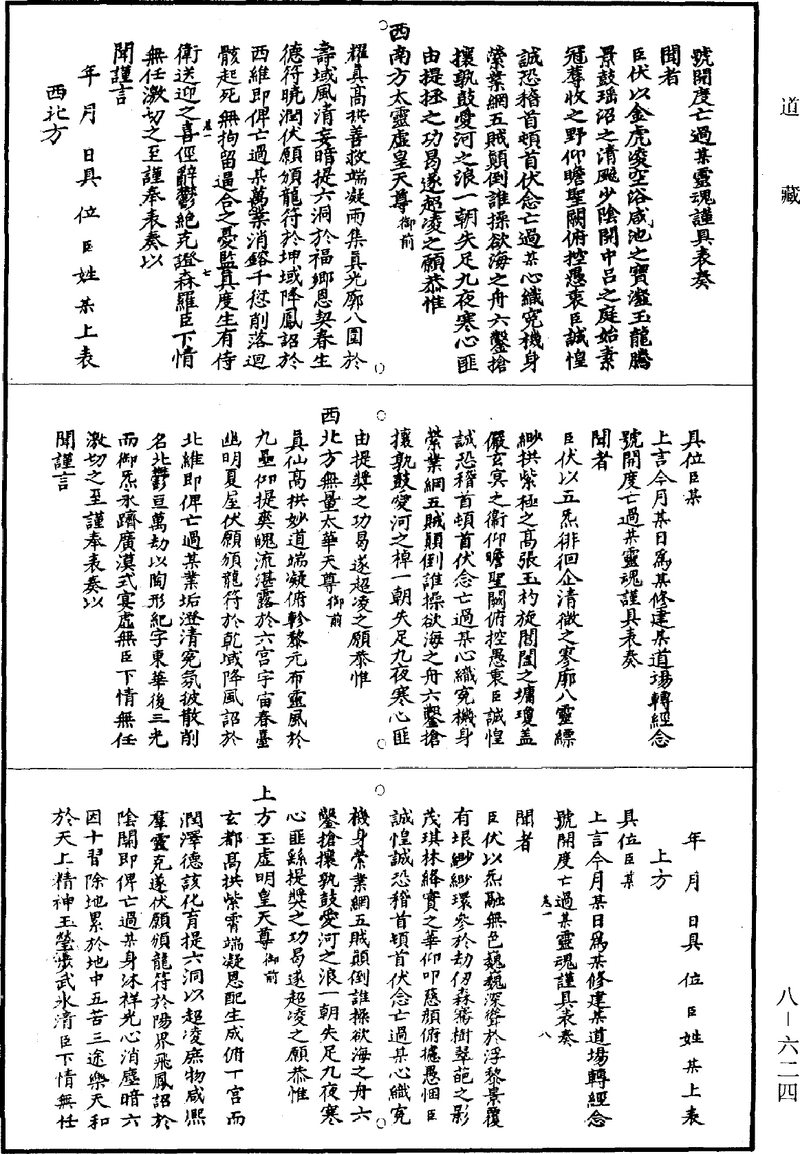 道藏
號開度亡過某靈魂謹具表奏
聞者
臣伏以金虎凌空浴咸池之寶瀣玉龍騰
景鼓瑤沼之清飈少陰開中呂之庭始素
冠蓐收之野仰瞻聖闕俯控愚衷臣誠惶
誠恐稽首頓首伏念亡過某心織寃機身
縈業網五賊顛倒誰操欲海之舟六鑿搶
攘孰鼓愛河之浪一朝失足九夜寒心匪
由提拯之功曷遂超凌之願恭惟
西南方太靈虛皇天尊御前
耀真高拱善救端凝雨集真光廓八圍於
壽域風清妄暗提六洞於福鄉恩契春生
德符曉潤伏願頒龍符於坤域降鳳詔於
西維即俾亡過某萬業消鎔千愆削落迴
骸起死無拘留逼合之憂監真度生有侍
衛送迎之喜俓辭鬱絕克證森羅臣下情
卷一 七
無任激切之至謹奉表奏以
聞謹言
年月日具位臣姓某上表
西北方
具位臣某
上言今月某日爲某修建某道場轉經念
號開度亡過某靈魂謹具表奏
聞者
臣伏以五炁徘徊企清微之寥廓八靈縹
緲拱紫極之高張玉杓旋閶闔之墉瓊蓋
儼玄冥之衞仰瞻聖闕俯控愚衷臣誠惶
誠恐稽首頓首伏念亡過某心織寃機身
縈業網五賊顛倒誰操欲海之舟六鑿搶
攘孰鼓愛河之棹一朝失足九夜寒心匪
由提獎之功曷遂超凌之願恭惟
西北方無量太華天尊御前
真仙高拱妙道端凝俯軫黎元布靈風於
九壘仰提爽魄流湛露於六宮宇宙春臺
幽明夏屋伏願頒龍符於乾域降鳳詔於
北維即俾亡過某業垢澄清寃氛披散削
名北鬱亘萬劫以陶形紀字東華後三光
而御炁永躋廣漠式宴虛無臣下情無任
激切之至謹奉表奏以
聞謹言
年月日具位臣姓某上表
上方
具位臣某
上言今月某日爲某修建某道場轉經念
號開度亡過某靈魂謹具表奏
卷一 八
聞者
臣伏以炁融無色巍巍深聳於浮黎景覆
有垠緲緲環參於劫仞森騫樹翠葩之影
茂琪林絳實之華仰叩慈顏俯攄愚悃臣
誠惶誠恐稽首頓首伏念亡過某心織寃
機身縈業網五賊顛倒誰操欲海之舟六
鑿搶攘孰鼓愛河之浪一朝失足九夜寒
心匪繇提獎之功曷遂超凌之願恭惟
上方玉虛明皇天尊御前
玄都高拱紫霄端凝恩配生成俯十宮而
潤澤德該化育提六洞以超凌庶物咸熙
羣靈克遂伏願頒龍符於陽界飛鳳詔於
陰關即俾亡過某身沐祥光心消塵暗六
因十習除地累於地中五苦三途樂天和
於天上精神玉瑩步武氷清臣下情無任
八—六二四